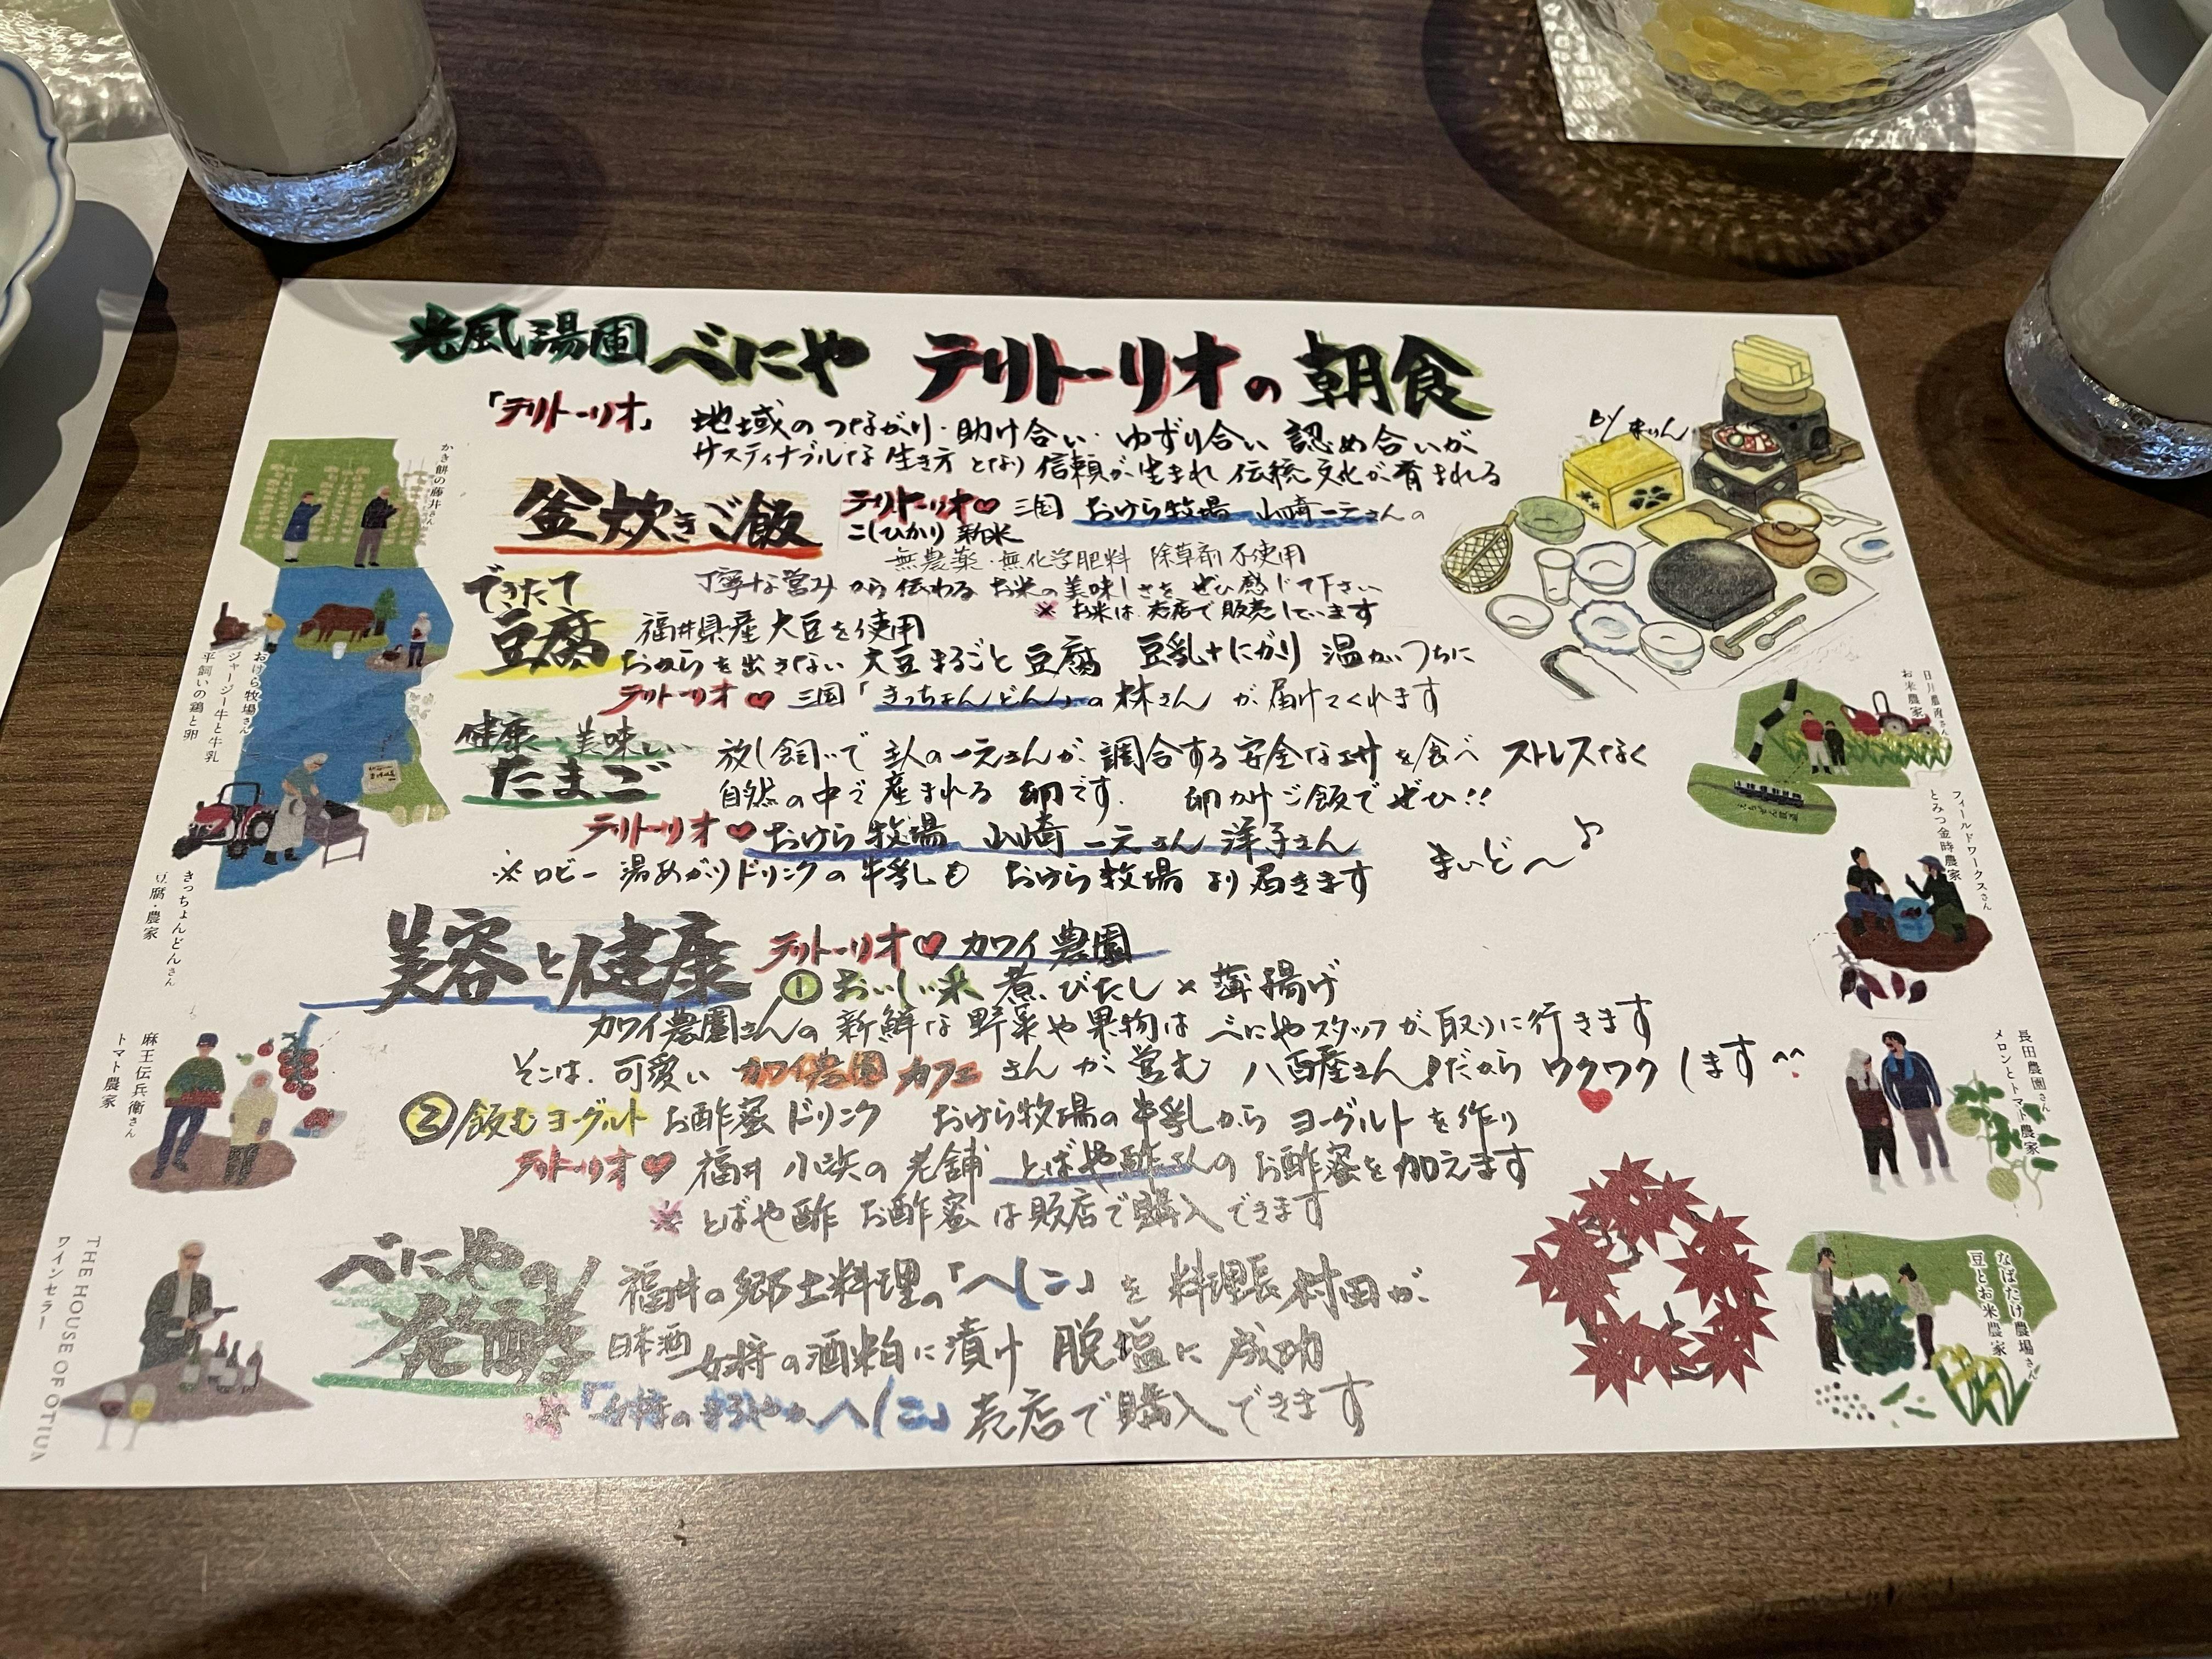 光風湯圃 べにや テリトーリオの朝食
「テリトーリオ」 地域のつながり・助け合い・ゆずり合い 認め合いが
サスティナブルな生き方となり 信頼が生まれ 伝統文化が育まれる
by まりん
釜炊きご飯 テリトーリオ♡ 三国 おけら牧場 山崎一元さんの
こしひかり 新米
無農薬・無化学肥料 除草剤不使用
丁寧な営みから伝わる お米の美味しさを ぜひ感じて下さい
※ お米は 売店で販売しています
できたて
豆腐 福井県産大豆を使用
おからを出さない 大豆まるごと豆腐 豆乳+にがり 温かいうちに
テリトーリオ♡ 三国「きっちょんどん」の 林さん が届けてくれます
健康 美味しい
たまご 放し飼いで 主人の一元さんが 調合する安全なエサを食べ ストレスなく
自然の中で 産まれる 卵です. 卵かけご飯で ぜひ!!
テリトーリオ♡ おけら牧場 山崎 一元さん 洋子さん
※ロビー 湯あがりドリンクの 牛乳も おけら牧場 より届きます まいど〜♪
美容と健康 テリトーリオ♡ カワイ農園
① おいしい菜 煮びたし×薄揚げ
カワイ農園さんの 新鮮な野菜や果物は べにやスタッフが取りに行きます
そこは、可愛い カワイ農園カフェ さんが営む 八百屋さん!だから ワクワクします^^
② 飲むヨーグルト お酢蜜ドリンク おけら牧場の牛乳から ヨーグルトを作り
テリトーリオ♡ 福井 小浜の老舗 とばや酢さんの お酢蜜を加えます
※ とばや酢 お酢蜜は販店で購入できます
べにやの
発酵 福井の郷土料理の「へしこ」を 料理長村田が、
日本酒 女将の酒粕に漬け 脱塩に成功
※「女将のまろやかへしこ」売店で購入できます
かき餅の藤井さん
おけら牧場さん
ジャージー牛と牛乳
平飼いの鶏と卵
きっちょんどんさん
豆腐・農家
麻王伝兵衛さん
トマト農家
THE HOUSE OF OTIUM
ワインセラー
お米農家
えちぜん鉄道
フィールドワークスさん
とみつ金時農家
長田農園さん
メロンとトマト農家
なばたけ農場さん
豆とお米農家